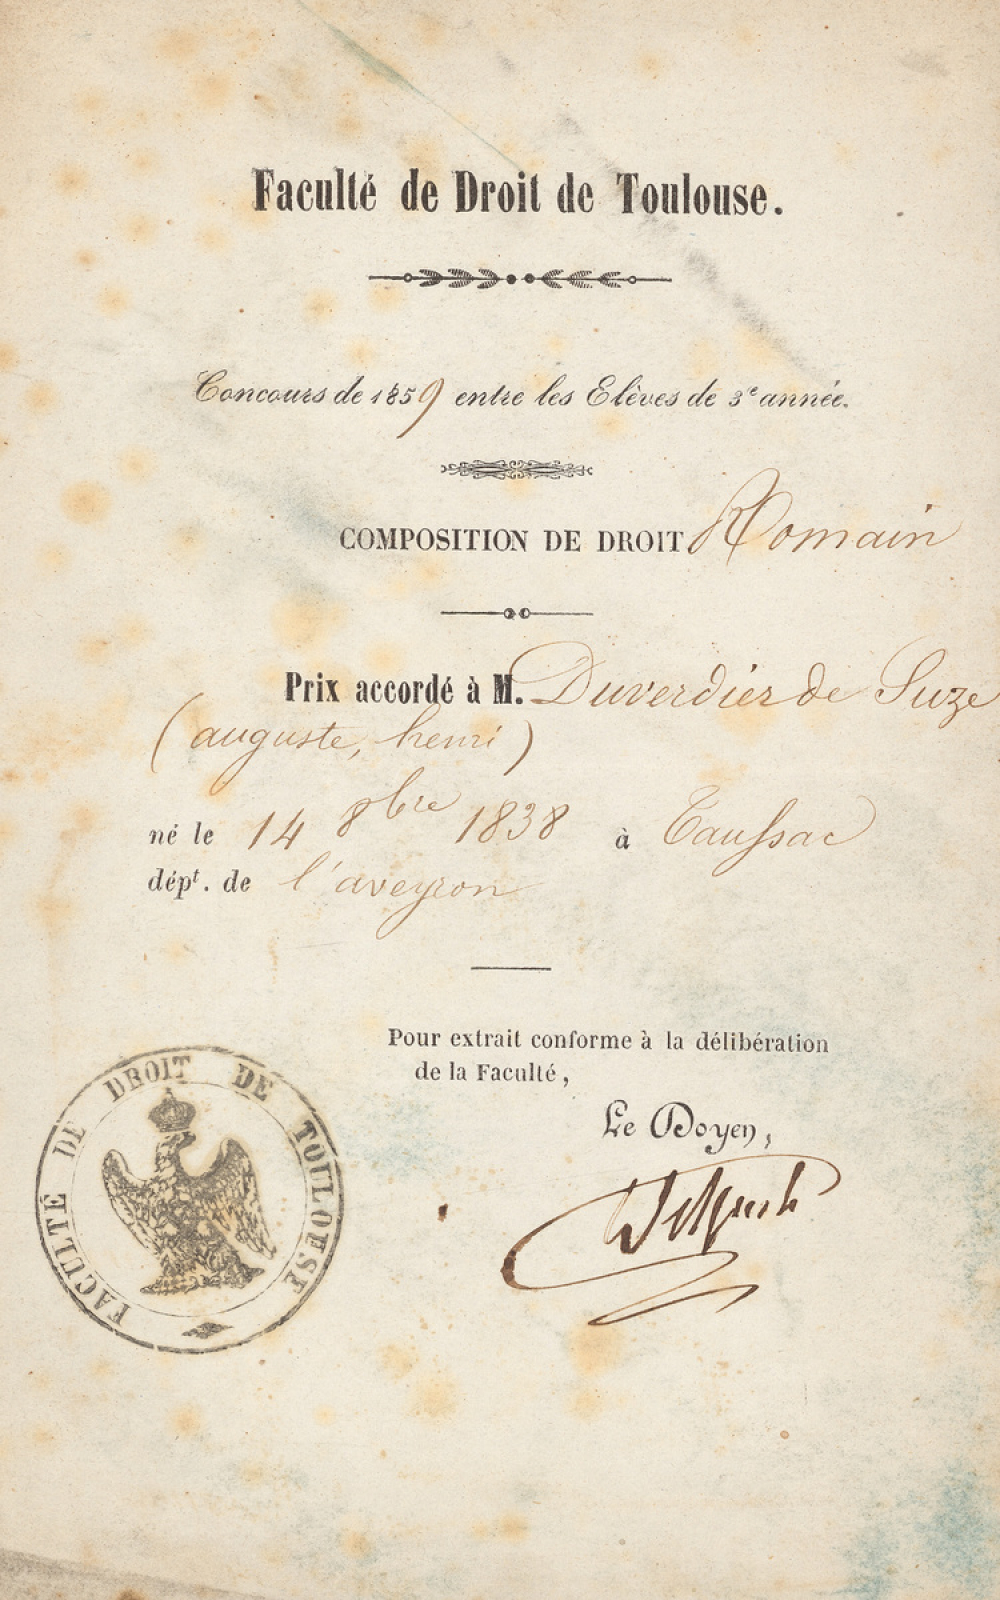 Faculté de Droit de Toulouse.
Concours de 1859 entre les Elèves de 3e année.
COMPOSITION DE DROIT Romain
Prix accordé à M. Duverdier de Suze
(auguste, henri)
né le 14 8bre 1838 à Taussac
dépt. de l'aveyron
Pour extrait conforme à la délibération
de la Faculté,
Le Doyen,
FACULTÉ DE DROIT DE TOULOUSE